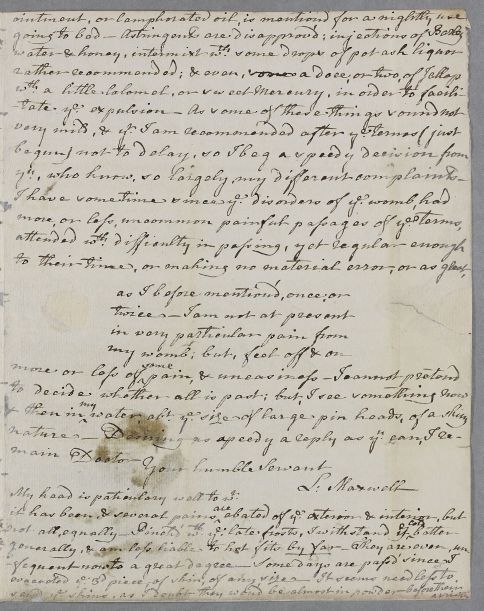 ointment, or Camphorated oil, is mentiond for a nightly use
going to bed — Astringents are disapprovd; injections of Barley
water & honey, intermixt wth. some drops of pot ash liquor
rather recommended; & even, a dose, or two, of Jallap
wth. a little Calomel, or sweet Mercury, in order to facili-
tate ye. expulsion — As some of these things sound not
very mild, & yt. I am recommended after ye. terms (just
begun) not to delay, so I beg a speedy decision from
yu., who know, so largely my different complaints —
I have sometime since ye. disorders of ye. womb, had
more, or less, uncommon painful passages of ye. terms,
attended wth. difficulty in passing, yet regular enough
to their time, or making no material error, or as great,
as I before mentiond, once, or
twice — I am not at present
in very particular pain from
my womb; but, feel off & on
more or less of some pain, & uneasiness — I cannot pretend
to decide whether all is past; but, I see something now
& then in my water abt. ye. size of large pin heads, of a skiny
nature — Desiring as speedy a reply as yu. can, I re-
main Doctor Your humble Servant
L: Maxwell
My head is particulary well to wt.
it has been, & several pains are abated of ye. exterior & interior, but
not all, equally — Pinchd wth. ye. late frosts, I withstand ye. cold better
generally, & am less liable to hot fits by far — They are even, un-
frequent now to a great degree — Some days are passd since I
evacuated ye. 3d piece of skin, of any size. It seems needless to
send ye. skins, as no doubt they wou'd be almost in powder before their